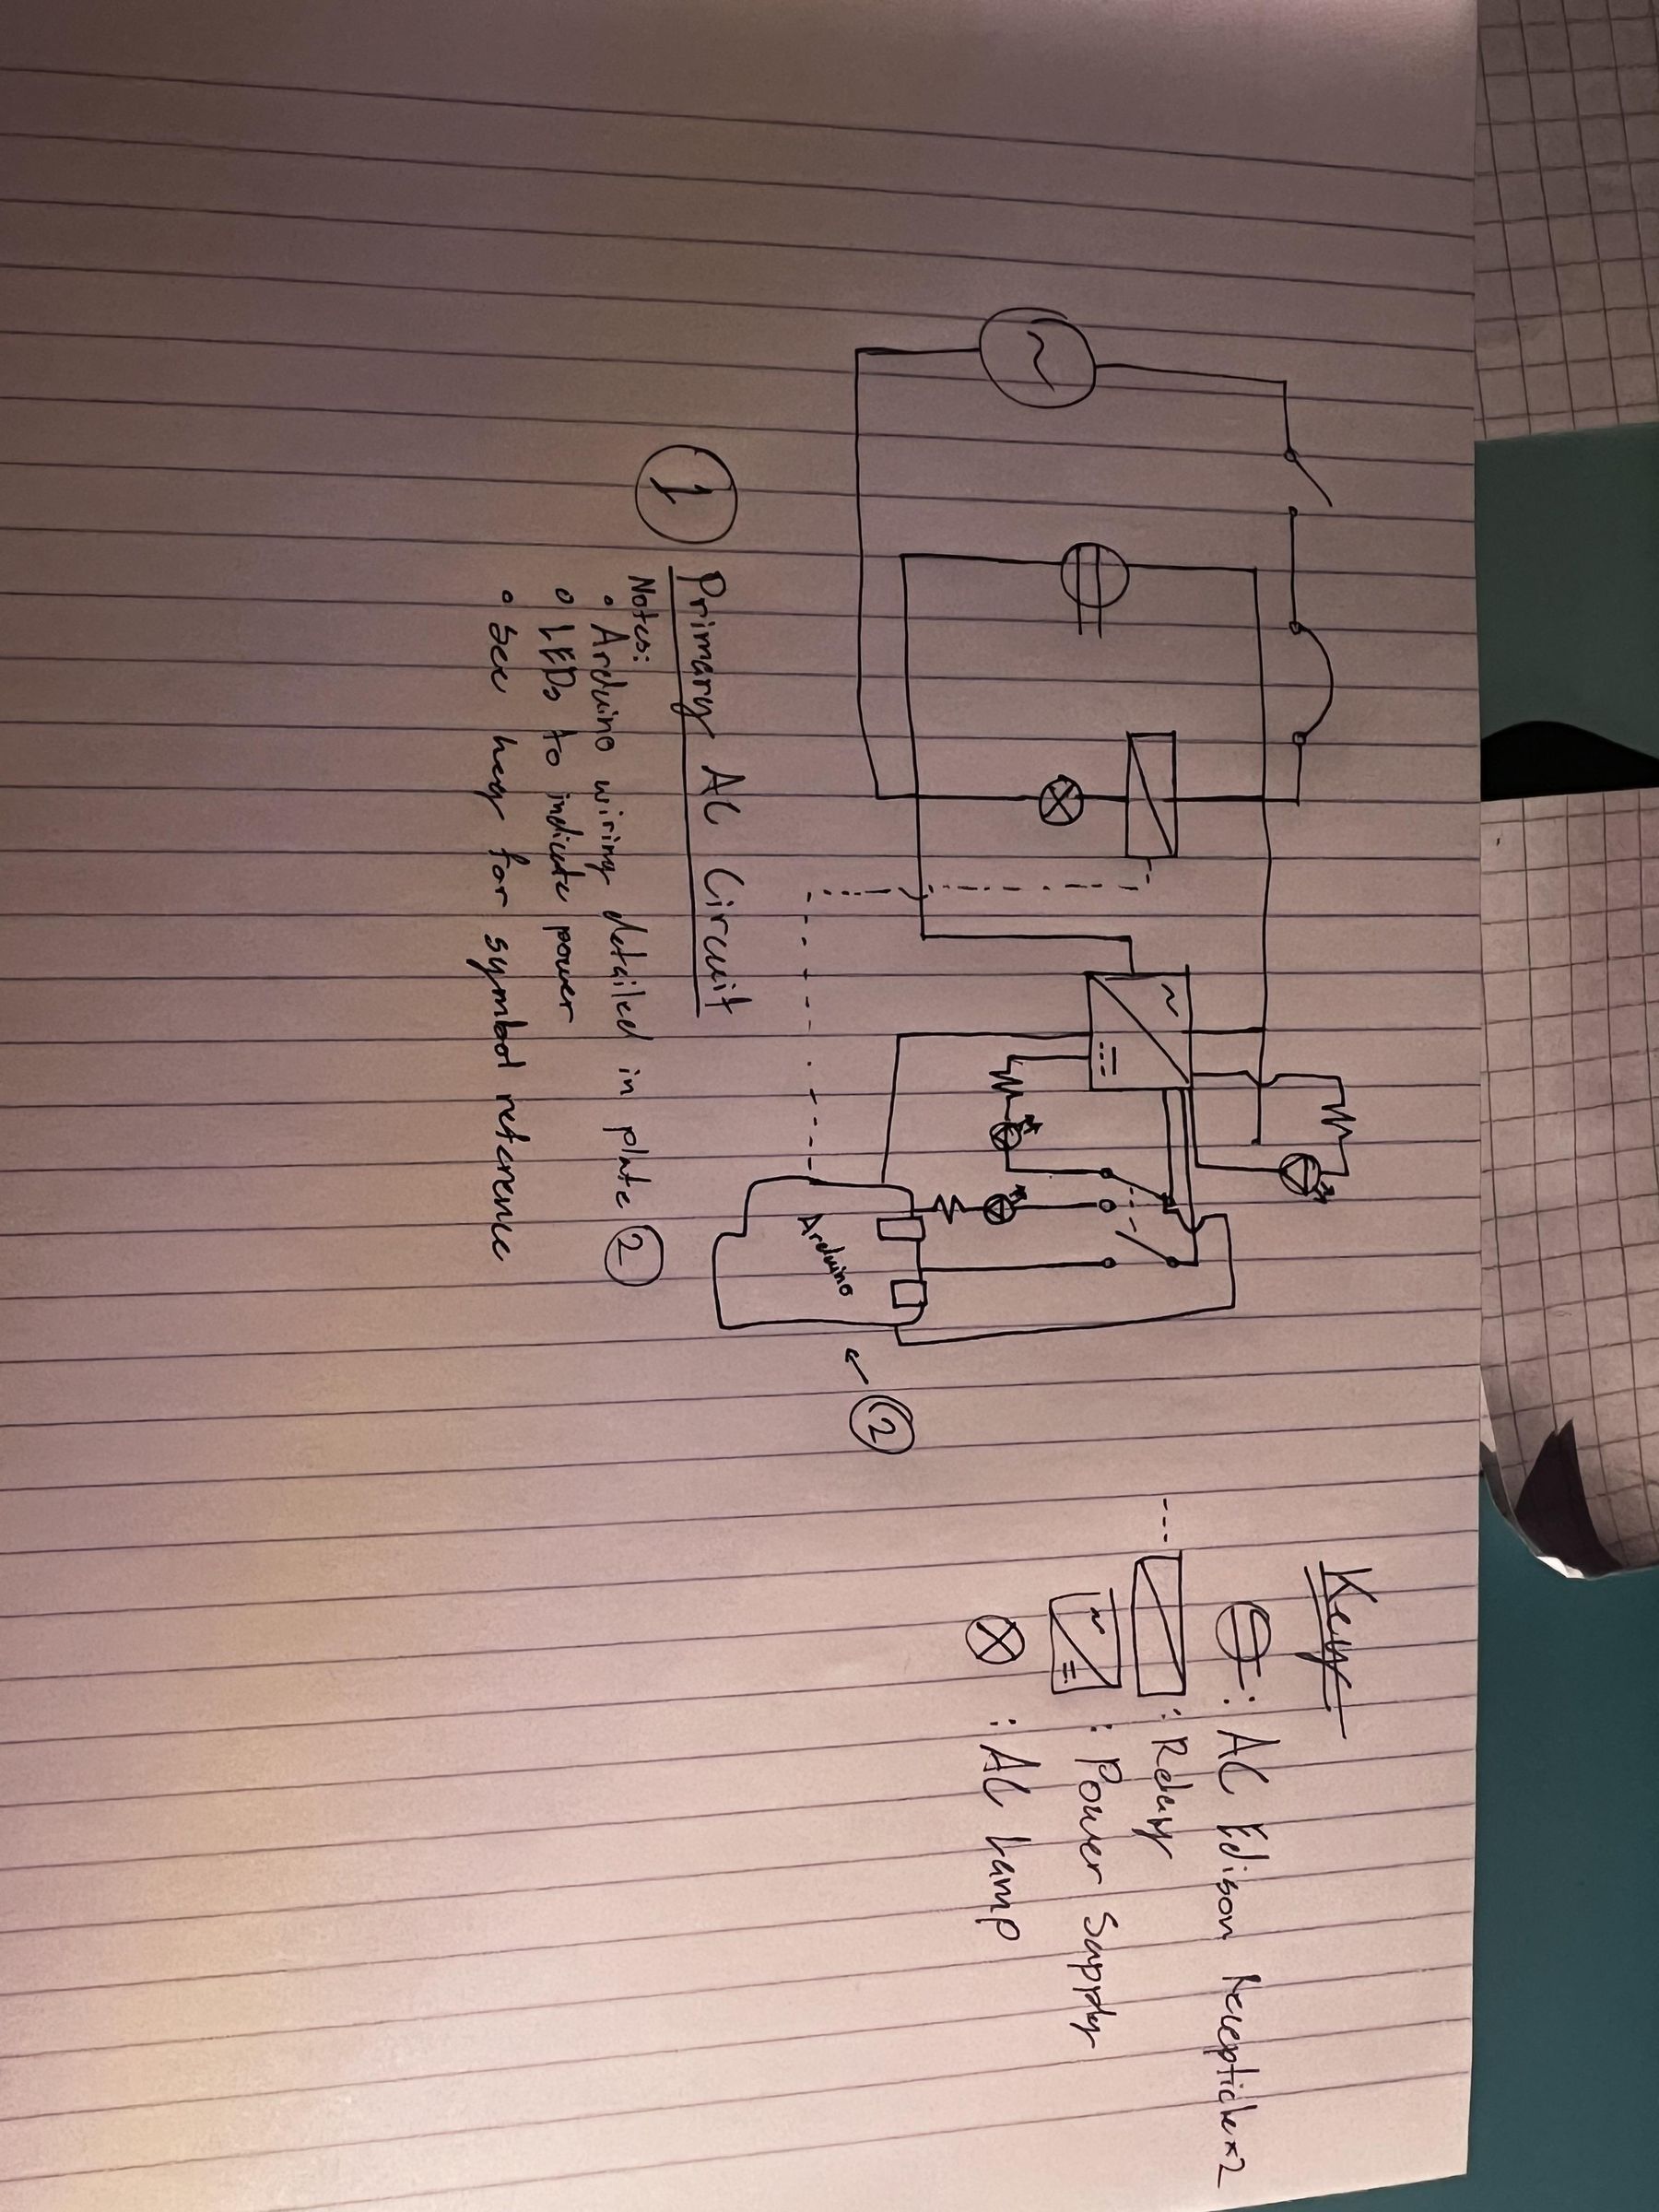 Key
: AC Edison Recepticle x2
: Relay
: Power Supply
: AC Lamp
Arduino
2
1
Primary AC Circuit
Notes:
• Arduino wiring detailed in plate 2
• LEDs to indicate power
• See key for symbol reference